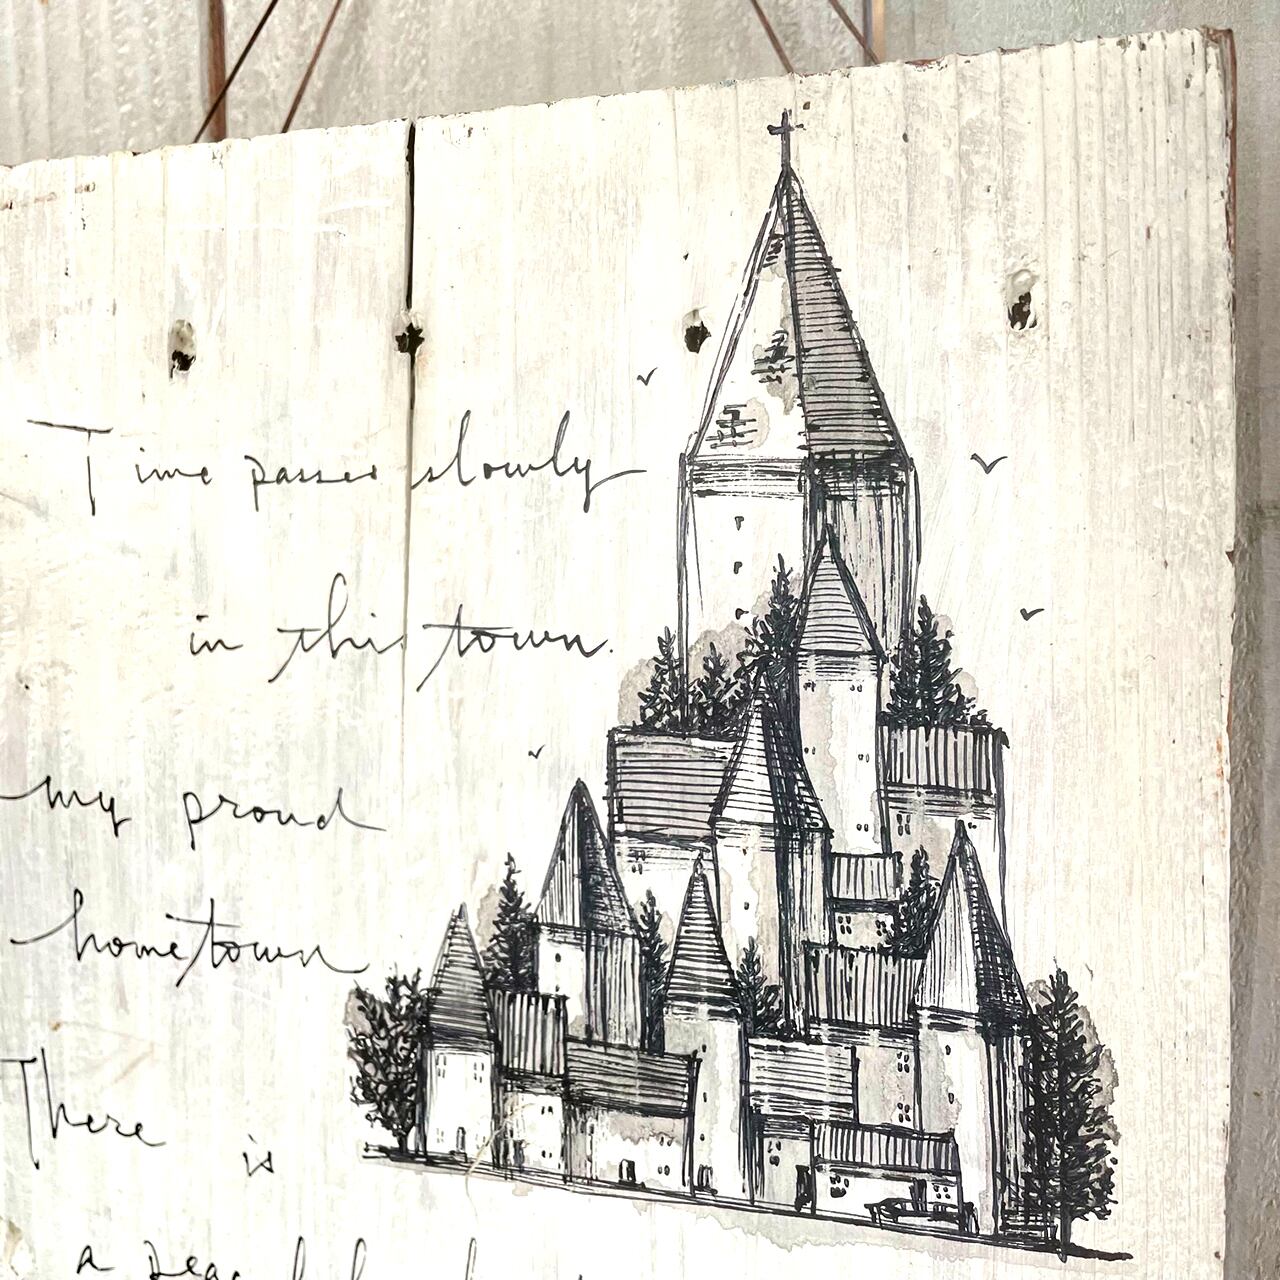 Time passes slowly
in this town.
my proud
hometown
There is
a